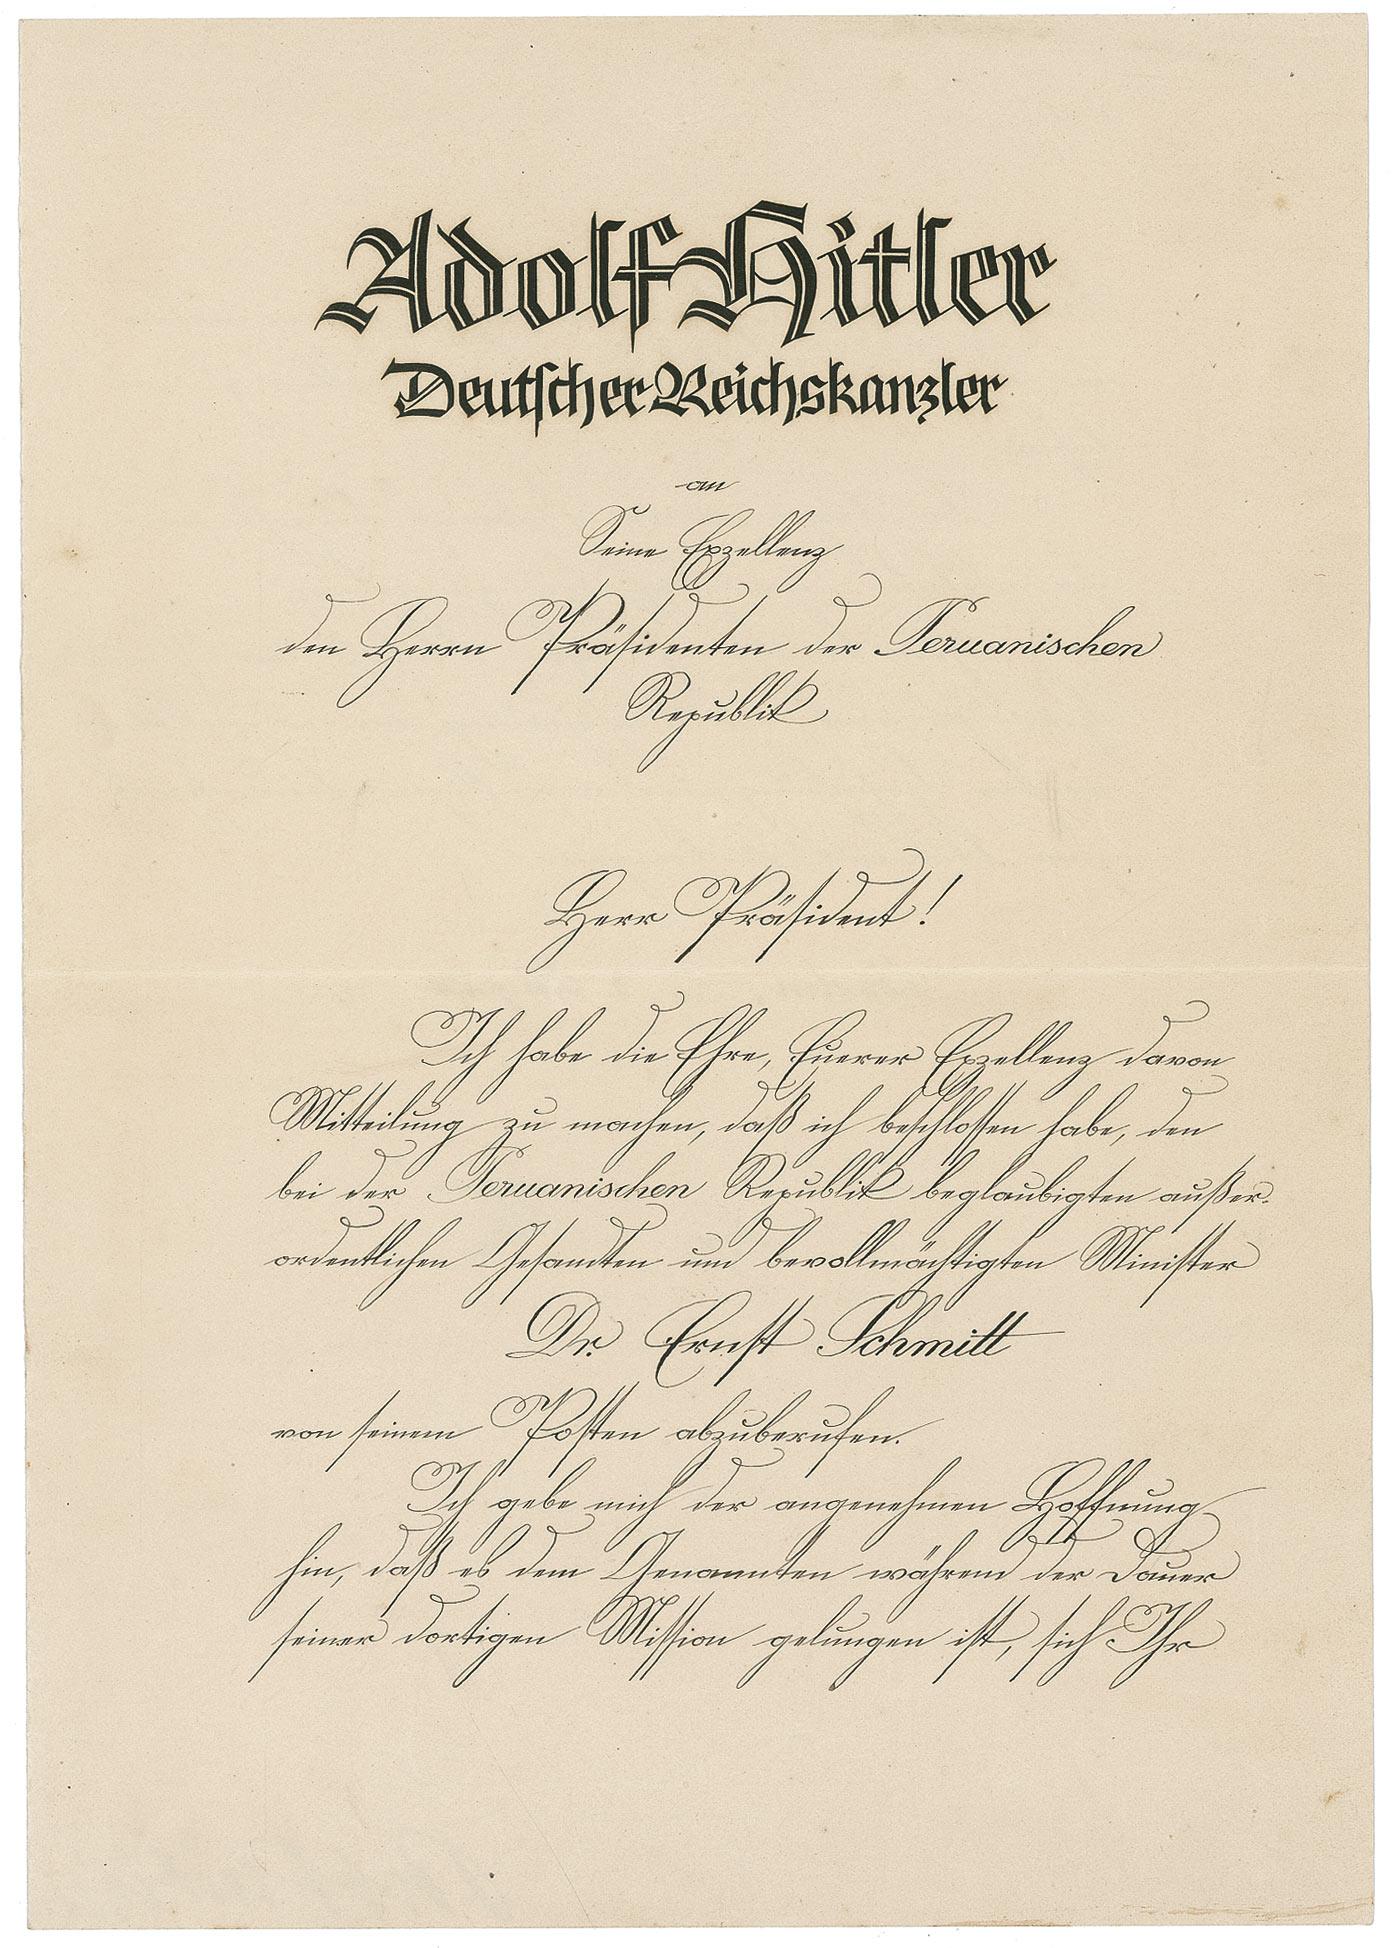 Adolf Hitler
Deutscher Reichskanzler
an
Seine Exzellenz
den Herrn Präsidenten der Peruanischen
Republik
Herr Präsident!
Ich habe die Ehre, Euerer Exzellenz davon
Mitteilung zu machen, daß ich beschlossen habe, den
bei der Peruanischen Republik beglaubigten außer-
ordentlichen Gesandten und bevollmächtigten Minister
Dr. Ernst Schmitt
von seinem Posten abzuberufen.
Ich gebe mich der angenehmen Hoffnung
hin, daß es dem Genannten während der Dauer
seiner dortigen Mission gelungen ist, sich Ihr